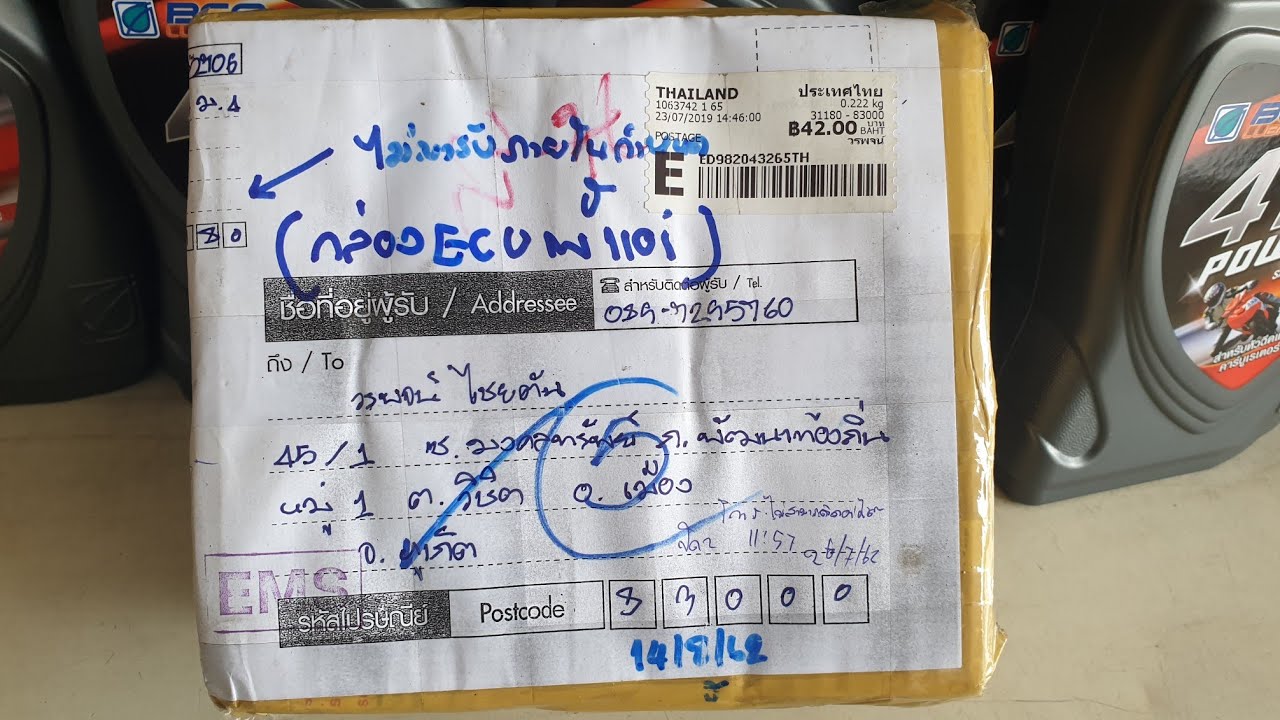 2906
ม.1
80
THAILAND ประเทศไทย
1063742 1 65 0.222 kg
23/07/2019 14:46:00 31180 - 83000
POSTAGE ฿42.00 บาท BAHT
วรพจน์
E ED982043265TH
ไม่มารับภายในกำหนด
(กล่อง ECU เวฟ 110i)
ชื่อที่อยู่ผู้รับ / Addressee
☎ สำหรับติดต่อผู้รับ / Tel.
ถึง / To
วรพจน์ ไชยตัน
45/1 ซ.มงคลทรัพย์ ถ.พัฒนาท้องถิ่น
หมู่ 1 ต.วิชิต อ.เมือง
จ.ภูเก็ต
11:57
26/7/62
EMS
รหัสไปรษณีย์ Postcode 83000
14/8/62
4T
POW
สำหรับหัวฉีด
คาร์บูเรเตอร์